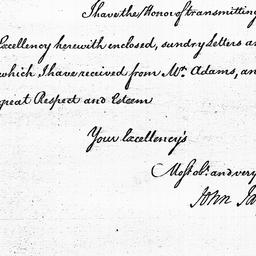 I have the Honor of transmitting
Excellency herewith enclosed, sundry Letters an
which I have received from Mr. Adams, an
great Respect and Esteem
Your Excellency's
Most obt. and very
John Ja